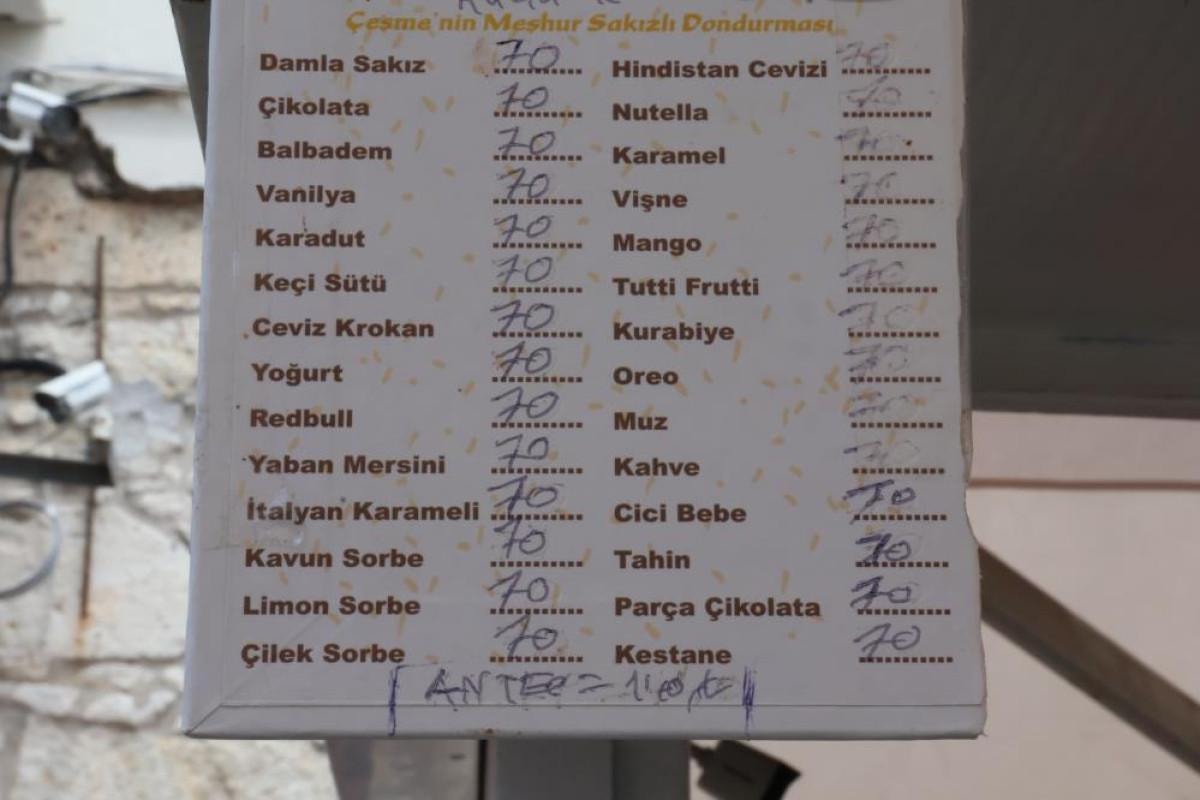 Çeşme'nin Meşhur Sakızlı Dondurması
Damla Sakız 70
Çikolata 70
Balbadem 70
Vanilya 70
Karadut 70
Keçi Sütü 70
Ceviz Krokan 70
Yoğurt 70
Redbull 70
Yaban Mersini 70
İtalyan Karameli 70
Kavun Sorbe 70
Limon Sorbe 70
Çilek Sorbe 70
Hindistan Cevizi 70
Nutella 70
Karamel 70
Vişne 70
Mango 70
Tutti Frutti 70
Kurabiye 70
Oreo 70
Muz 70
Kahve 70
Cici Bebe 70
Tahin 70
Parça Çikolata 70
Kestane 70